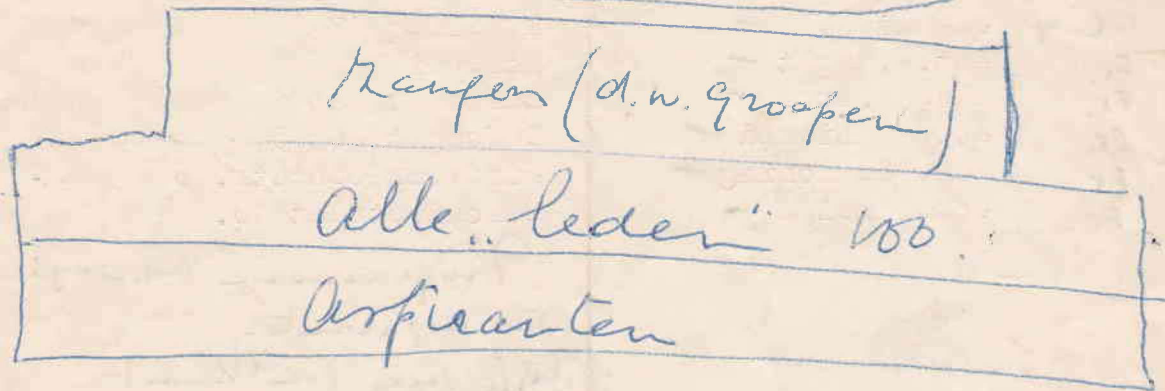 (d.w. Groepen)
alle „leden" 100.
Aspiranten